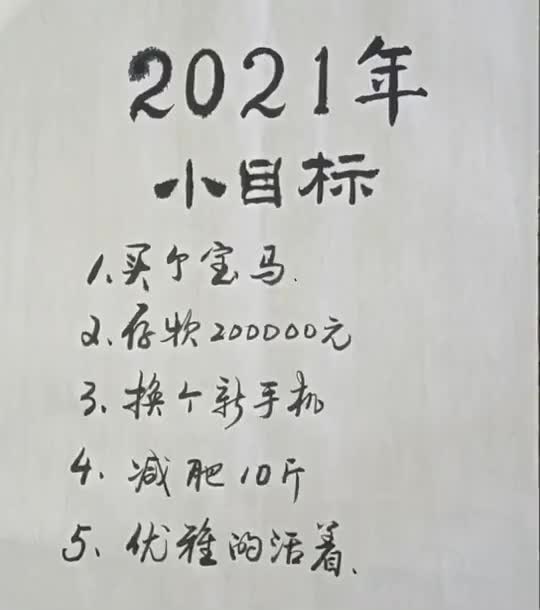 2021年
小目标
1.买个宝马.
2.存款200000元
3、换个新手机
4、减肥10斤
5、优雅的活着.